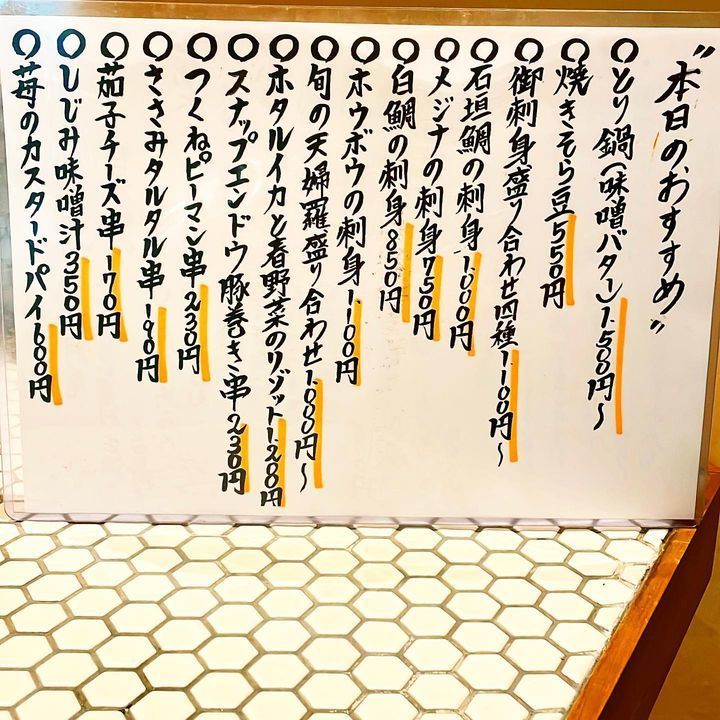 "本日のおすすめ"
○とり鍋(味噌バター)1.500円〜
○焼きそら豆550円
○御刺身盛り合わせ四種1.100円〜
○石垣鯛の刺身1.000円
○メジナの刺身750円
○白鯛の刺身850円
○ホウボウの刺身1.100円
○旬の天婦羅盛り合わせ1.000円〜
○ホタルイカと春野菜のリゾット1.200円
○スナップエンドウ豚巻き串230円
○つくねピーマン串230円
○ささみタルタル串190円
○茄子チーズ串170円
○しじみ味噌汁350円
○苺のカスタードパイ600円